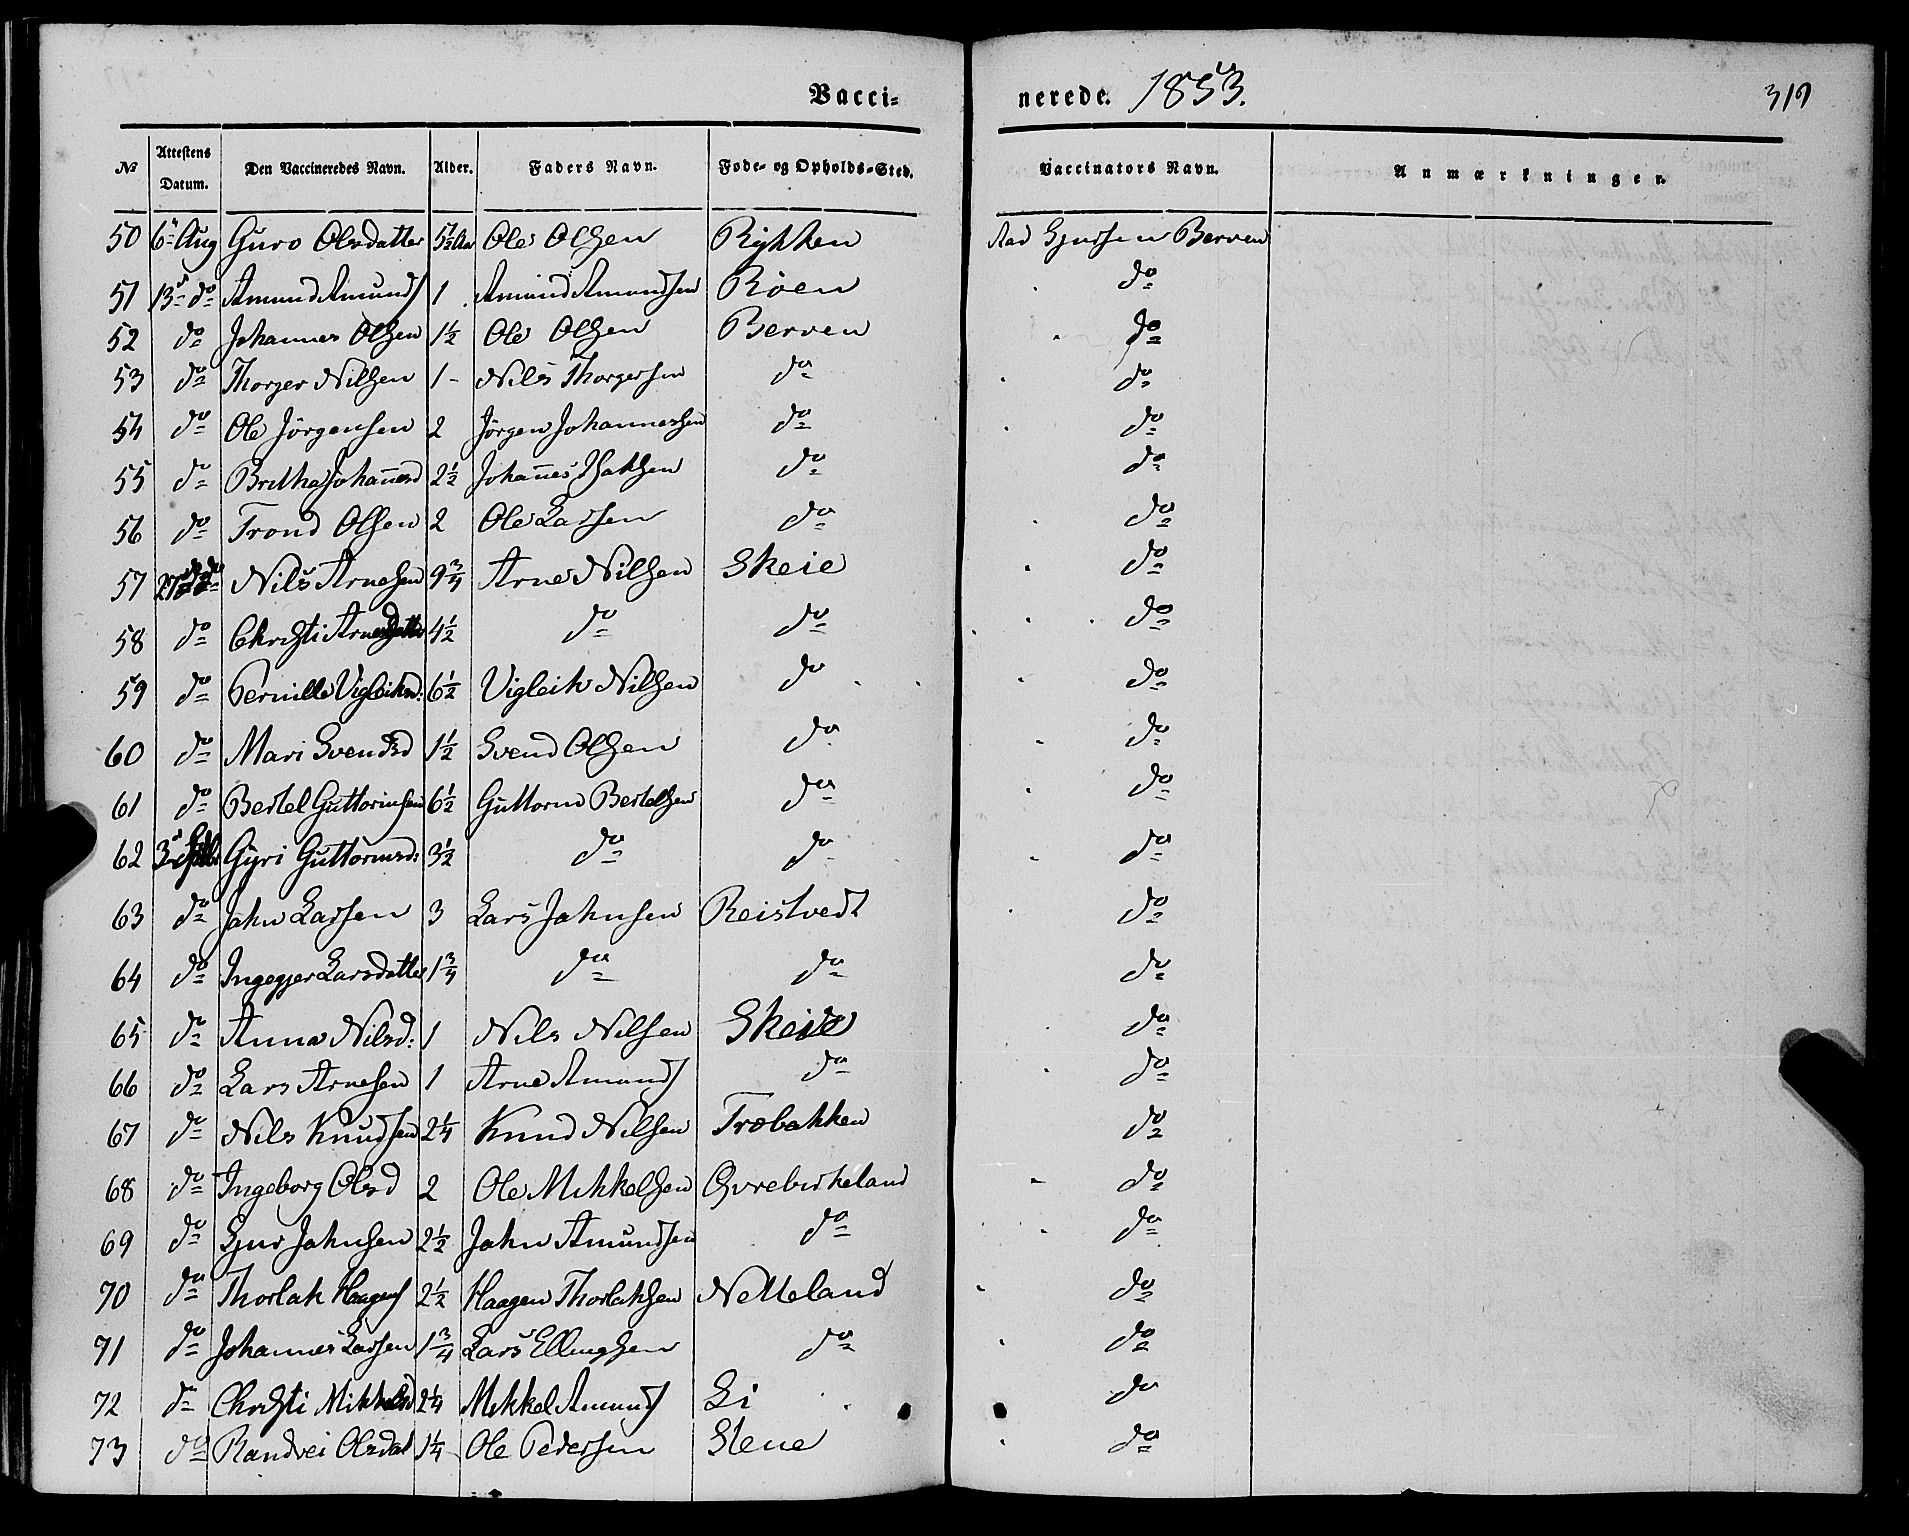 Vacci- nerede. 1853. 319
No Attestens Datum. Den Vaccineredes Navn. Alder. Faders Navn. Føde- og Opholds-Sted. Vaccinators Navn. Anmærkninger.
50 6 Aug Guro Olsdatter 5½ Aar Ole Olsen Rykken Aad Sjursen Berven
51 13 do Amund Amunds 1 Amund Amundsen Røen do
52 do Johannes Olsen 1½ Ole Olsen Berven do
53 do Thorger Nilsen 1 - Nils Thorgersen do do
54 do Ole Jörgensen 2 Jörgen Johannessen do do
55 do Britha Johannesd 2½ Johannes Isaksen do do
56 do Trond Olsen 2 Ole Larsen do do
57 27 do Nils Arnesen 9¾ Arne Nilsen Skeie do
58 do Christi Arnesdatter 4½ do do do
59 do Pernille Vigleiksd: 6½ Vigleik Nilsen do do
60 do Mari Svendsd 1½ Svend Olsen do do
61 do Bertel Guttormsen 6½ Guttorm Bertelsen do do
62 3 Gyri Guttormsd: 3½ do do do
63 do John Larsen 3 Lars Johnsen Reistvedt do
64 do Ingegjer Larsdatter 1¾ do do do
65 do Anna Nilsd: 1 Nils Nilsen Skeie do
66 do Lars Arnesen 1 Arne Amunds do do
67 do Nils Knudsen 2¼ Knud Nilsen Træbakken do
68 do Ingeborg Olsd 2 Ole Mikkelsen Øvrebirkeland do
69 do Sjur Johnsen 2½ John Amundsen do do
70 do Thorlak Haagens 2½ Haagen Thorlaksen Netteland do
71 do Johannes Larsen 1¾ Lars Ellingsen do do
72 do Christi Mikkelsd 2¼ Mikkel Amunds Li do
73 do Randvei Olsdat 1¼ Ole Pedersen Stene do